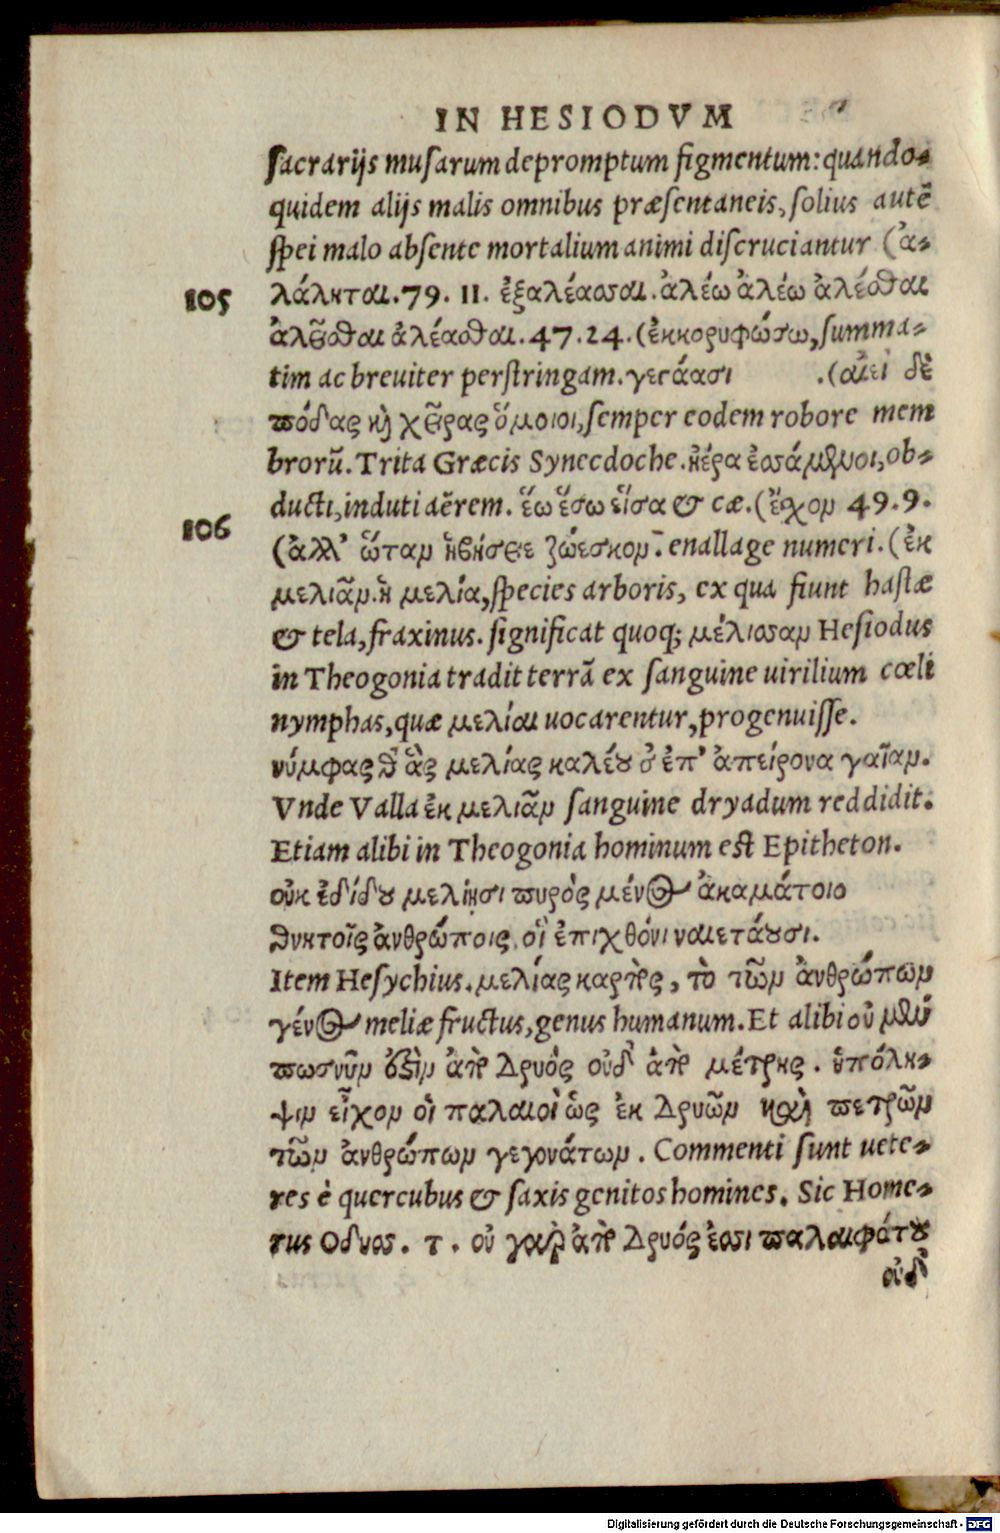 IN HESIODVM
sacrarijs musarum depromptum figmentum: quando-
quidem alijs malis omnibus præsentaneis, solius autẽ
spei malo absente mortalium animi discruciantur (ἀ-
105
λάληται. 79. 11. ἐξαλέασαι. ἀλέω ἀλέω ἀλέσθαι
ἀλεῖσθαι ἀλέασθαι. 47. 24. (ἐκκορυφώσω, summa-
tim ac breuiter perstringam. γεγάασι .(αἰεὶ δὲ
πόδας καὶ χεῖρας ὅμοιοι, semper eodem robore mem
brorũ. Trita Græcis Synecdoche. ἠέρα ἑσσάμενοι, ob-
ducti, induti aẽrem. ἕω ἕσω εἷσα & cæ. (ἔχον 49. 9.
106
(ἀλλ' ὥταν ἡβήσειε ζώεσκον. enallage numeri. (ἐκ
μελιᾶν. ἡ μελία, species arboris, ex qua fiunt hastæ
& tela, fraxinus. significat quoq; μέλισσαν Hesiodus
in Theogonia tradit terrã ex sanguine uirilium cœli
nymphas, quæ μελίαι uocarentur, progenuisse.
νύμφας θ' ἃς μελίας καλέουσ' ἐπ' ἀπείρονα γαῖαν.
Vnde Valla ἐκ μελιᾶν sanguine dryadum reddidit.
Etiam alibi in Theogonia hominum est Epitheton.
οὐκ ἐδίδου μελίῃσι πυρὸς μένος ἀκαμάτοιο
θνητοῖς ἀνθρώποις, οἳ ἐπιχθόνι ναιετάουσι.
Item Hesychius. μελίας καρπὸς, τὸ τῶν ἀνθρώπων
γένος meliæ fructus, genus humanum. Et alibi οὐ μέν
πωσνῦν ὅξὶν ἀπὸ Δρυὸς οὐδ' ἀπὸ μέτρης. ὑπόλη-
ψιν εἶχον οἱ παλαιοὶ ὡς ἐκ Δρυῶν καὶ πετρῶν
τῶν ἀνθρώπων γεγονάτων. Commenti sunt uete-
res è quercubus & saxis genitos homines. Sic Home-
rus Οδυσ. τ. οὐ γαρ ἀπὸ Δρυός ἐσσι παλαιφάτου
οὐδ'
Digitalisierung gefördert durch die Deutsche Forschungsgemeinschaft - DFG